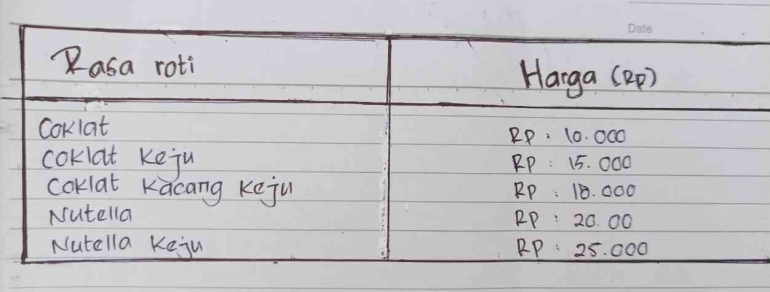 Date
Rasa roti Harga (Rp)
Coklat RP : 10.000
Coklat Keju RP : 15.000
Coklat Kacang Keju RP : 18.000
Nutella RP : 20.00
Nutella Keju RP : 25.000